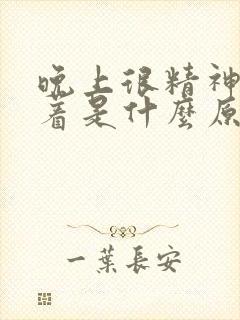 晚上很精神
着是什麼原
一葉長安